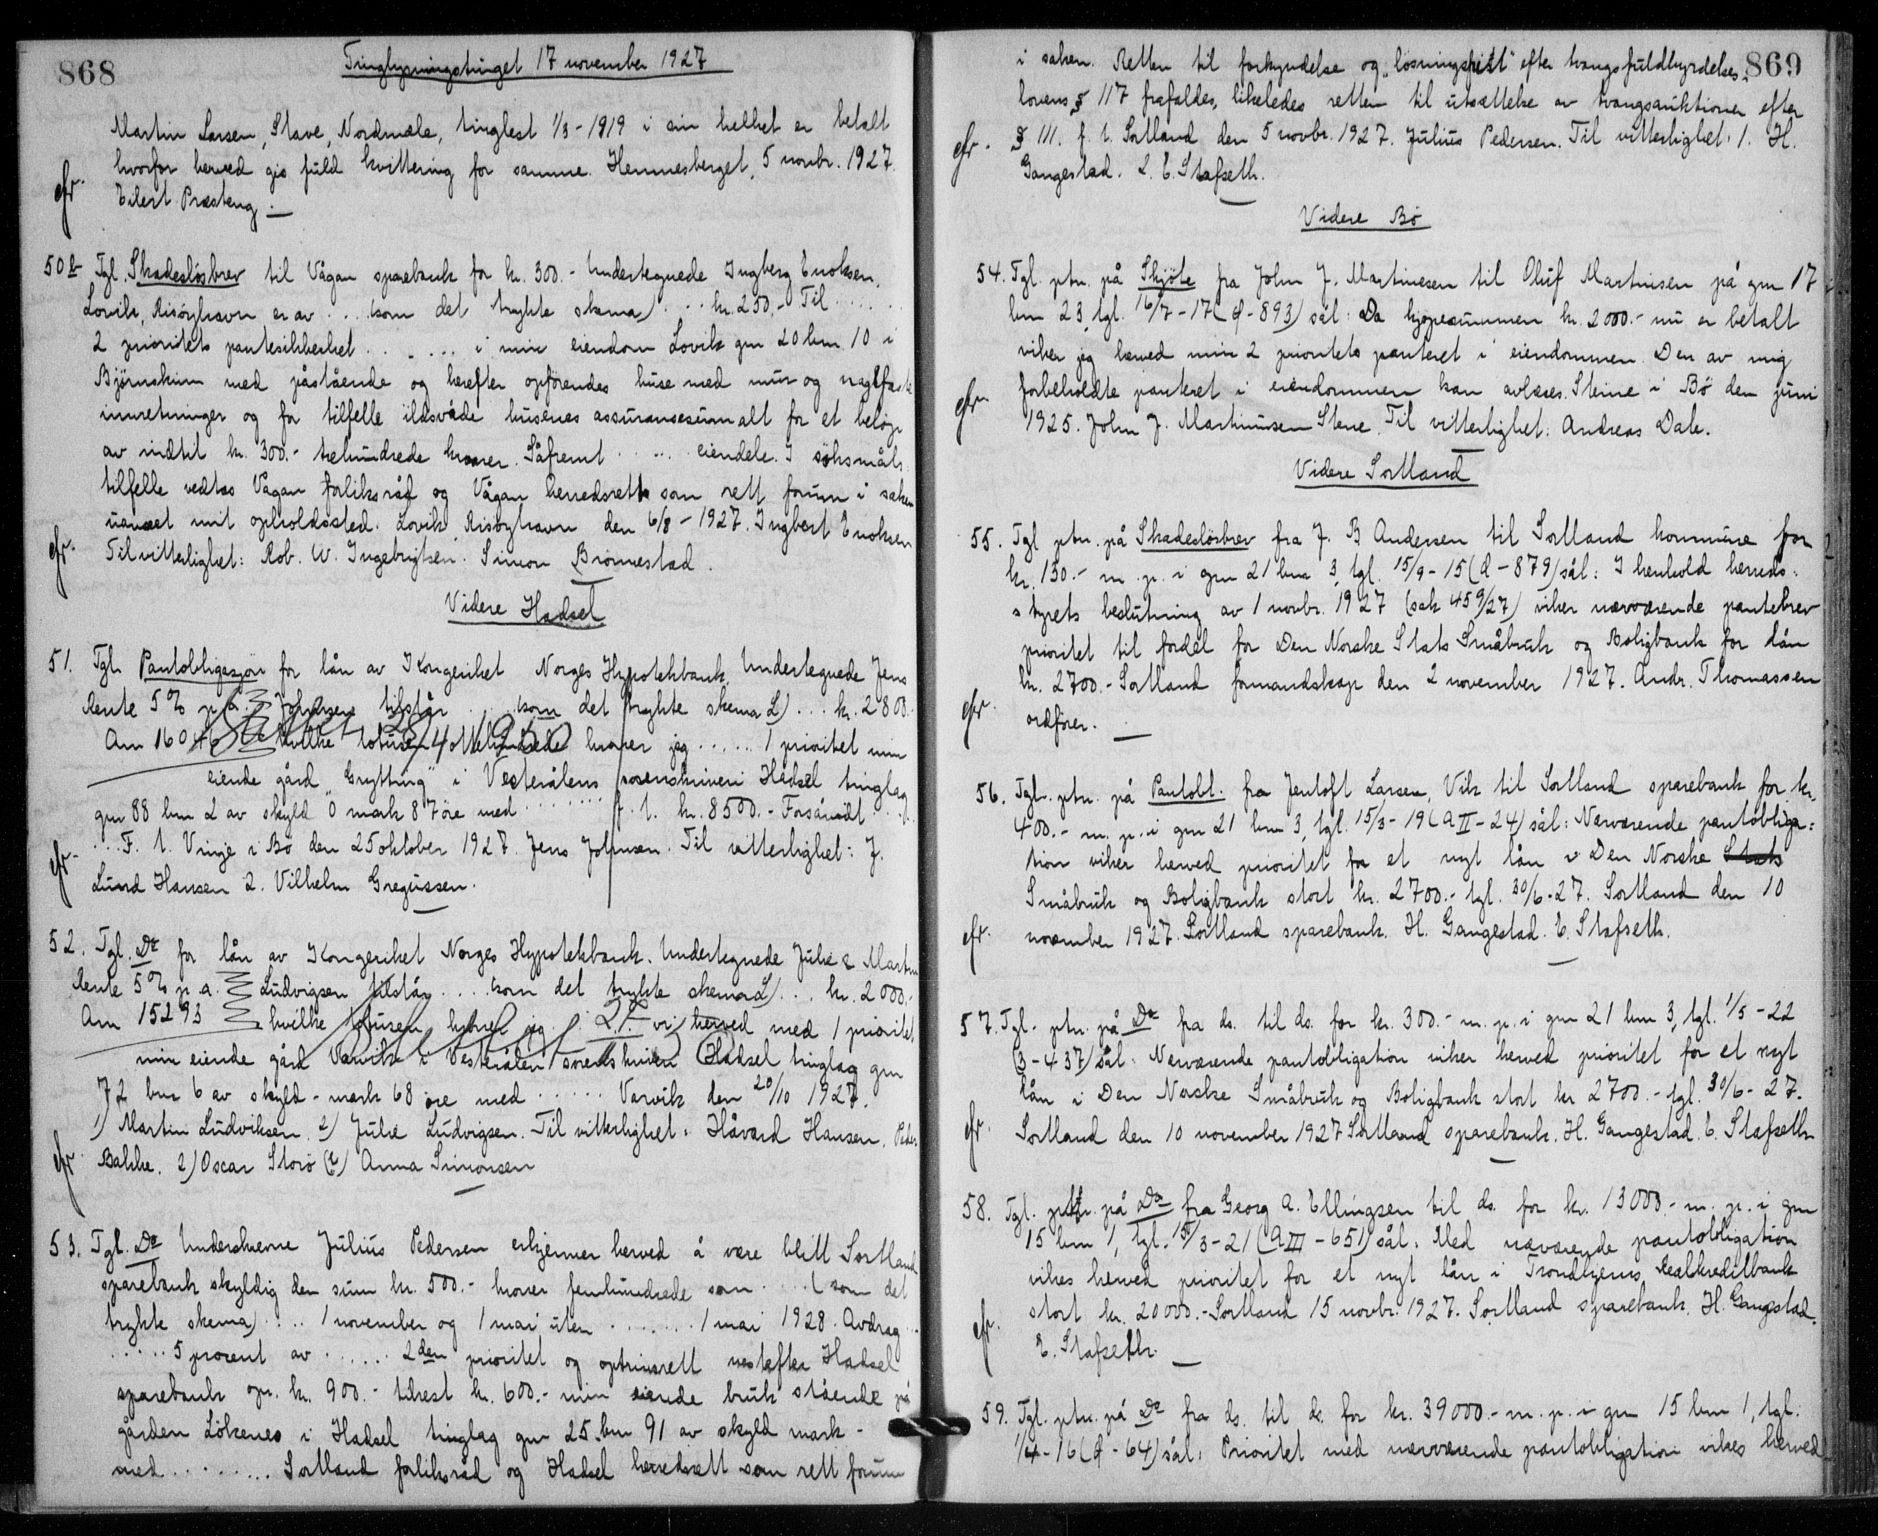 868
Tinglysningstinget 17 november 1927
Martin Larsen, Stave, Nordmæla, tinglest 1/3-1919 i sin helhet er betalt
hvorfor herved gis fuld kvittering for samme. Hennesberget, 5 novbr. 1927.
Eilert Præsteng.
50b Tgl. Skadesløsbrev til Vågan sparebank for kr. 300.- Undertegnede Ingberg Enoksen,
Lovik, Risøyhavn er av .... (som det trykte skema) ... kr. 250.- Til .....
2 prioritets pantesikkerhet ....... i min eiendom Lovik gnr 20 bnr. 10 i
Bjørnskinn med påstående og herefter opførendes huse med mur og naglfaste
innretninger og for tilfelle ildsvåde husenes assuransesum alt for et beløp
av indtil kr. 300.- trehundrede kroner. Såfremt ..... eiendele. I søksmåls
tilfelle vedtas Vågan forliksråd og Vågan herredsrett som rett forum i saken
uanset mit opholdssted. Lovik, Risøyhavn den 6/8-1927. Ingbert Enoksen
Til vitterlighet: Rob. W. Ingebrigtsen. Simon Brønnestad.
Videre Hadsel
51. Tgl. Pantobligasjon for lån av Kongeriket Norges Hypotekbank. Undertegnede Jens
Rente 5% p.a. Johnsen tilstår .... (som det trykte skema L) ... kr. 2800.-
Ann 16046 hvilke totusen/ottehundrede kroner jeg ...... 1 prioritet min
eiende gård "Grytting" i Vesterålens sorenskriveri Hadsel tinglag
gnr 88 bnr 2 av skyld 0 mark 87 øre med ........ f. t. kr. 8500.- Forsåvidt ....
... F. t. Vinje i Bø den 25 oktober 1927. Jens Johnsen. Til vitterlighet: J.
Lund Hansen 2. Vilhelm Gregussen.
52. Tgl. Do for lån av Kongeriket Norges Hypotekbank. Undertegnede Julie & Martin
Rente 5% p.a. Ludvigsen tilstår .... (som det trykte skema L) ... kr. 2000.-
Ann 15293 hvilke totusen kroner jeg .. vi herved med 1 prioritet
min eiende gård Varvik i Vesterålen sorenskriveri Hadsel tinglag gnr
72 bnr 6 av skyld - mark 68 øre med ...... Varvik den 20/10 1927.
1) Martin Ludviksen. 2) Julie Ludvigsen. Til vitterlighet: Håvard Hansen, Peder
Bakke. 2) Oscar Storø (?) Anna Simonsen
53. Tgl. Do Underskrevne Julius Pedersen erkjenner herved å være blitt Sortland
sparebank skyldig den sum kr. 500.- kroner femhundrede som .... (som det
trykte skema) .... 1 november og 1 mai uten ....... 1 mai 1928. Avdrag ...
..... 5 prosent av ...... 2den prioritet og optrinsrett nestefter Hadsel
sparebank opr. kr. 900.- tilrest kr. 600.- min eiende bruk stående på
gården Løkenes i Hadsel tinglag gnr 25 bnr 91 av skyld mark -
med ......... Sortland forliksråd og Hadsel herredsrett som rett forum
869
i saken. Retten til forkyndelse og "løsningsfrist" efter tvangsfuldbyrdelses-
lovens § 117 frafaldes, likeledes retten til utsættelse av tvangsauktionen efter
§ 111. f. t. Sortland den 5 novbr. 1927. Julius Pedersen. Til vitterlighet: 1. H.
Gangestad. 2. E. Stafseth.
Videre Bø
54. Tgl. ptn. på Skjøte fra John J. Martinesen til Oluf Martinsen på gnr 17
bnr 23, tgl. 16/7-17 (Q-893) sål: Da kjøpesummen kr. 2000.- nu er betalt
viker jeg herved min 2 prioritets panteret i eiendommen. Den av mig
forbeholdte panteret i eiendommen kan avlæses. Steine i Bø den juni
1925. John J. Martinusen Stene. Til vitterlighet: Andreas Dale.
Videre Sortland
55. Tgl. ptn. på Skadesløsbrev fra J. B Andersen til Sortland kommune for
kr. 150.- m. p. i gnr 21 bnr 3, tgl. 15/9-15 (Q-879) sål: I henhold herreds-
styrets beslutning av 1 novbr. 1927 (sak 459/27) viker nærværende pantebrev
prioritet til fordel for Den Norske Stats Småbruk og Boligbank for lån
kr. 2700.- Sortland formandskap den 2 november 1927. Andr. Thomassen
ordfører.
56. Tgl. ptn. på Pantobl. fra Jentoft Larsen, Vik til Sortland sparebank for kr.
400.- m. p. i gnr 21 bnr 3, tgl. 15/3-19 (A II-24) sål: Nærværende pantobliga-
tion viker herved prioritet for et nyt lån i Den Norske Stats
Småbruk og Boligbank stort kr. 2700.- tgl. 30/6-27. Sortland den 10
november 1927. Sortland sparebank. H. Gangestad. E. Stafseth.
57. Tgl. ptn. på Do fra ds. til ds. for kr. 300.- m. p. i gnr 21 bnr 3, tgl. 1/5-22
(3-437) sål: Nærværende pantobligation viker herved prioritet for et nyt
lån i Den Norske Småbruk og Boligbank stort kr 2700.- tgl. 30/6-27.
Sortland den 10 november 1927 Sortland sparebank. H. Gangestad. E. Stafseth
58. Tgl. ptn. på Do fra Georg A. Ellingsen til ds. for kr. 13000.- m. p. i gnr
15 bnr 1, tgl. 15/3-21 (A III-651) sål: Med nærværende pantobligation
vikes herved prioritet for et nyt lån i Trondhjems Realkreditbank
stort kr. 20000.- Sortland 15 novbr. 1927. Sortland sparebank. H. Gangestad.
E. Stafseth.
59. Tgl. ptn. på Do fra ds. til ds. for kr. 39000.- m. p. i gnr 15 bnr 1, tgl.
1/4-16 (Q-64) sål: Prioritet med nærværende pantobligation vikes herved